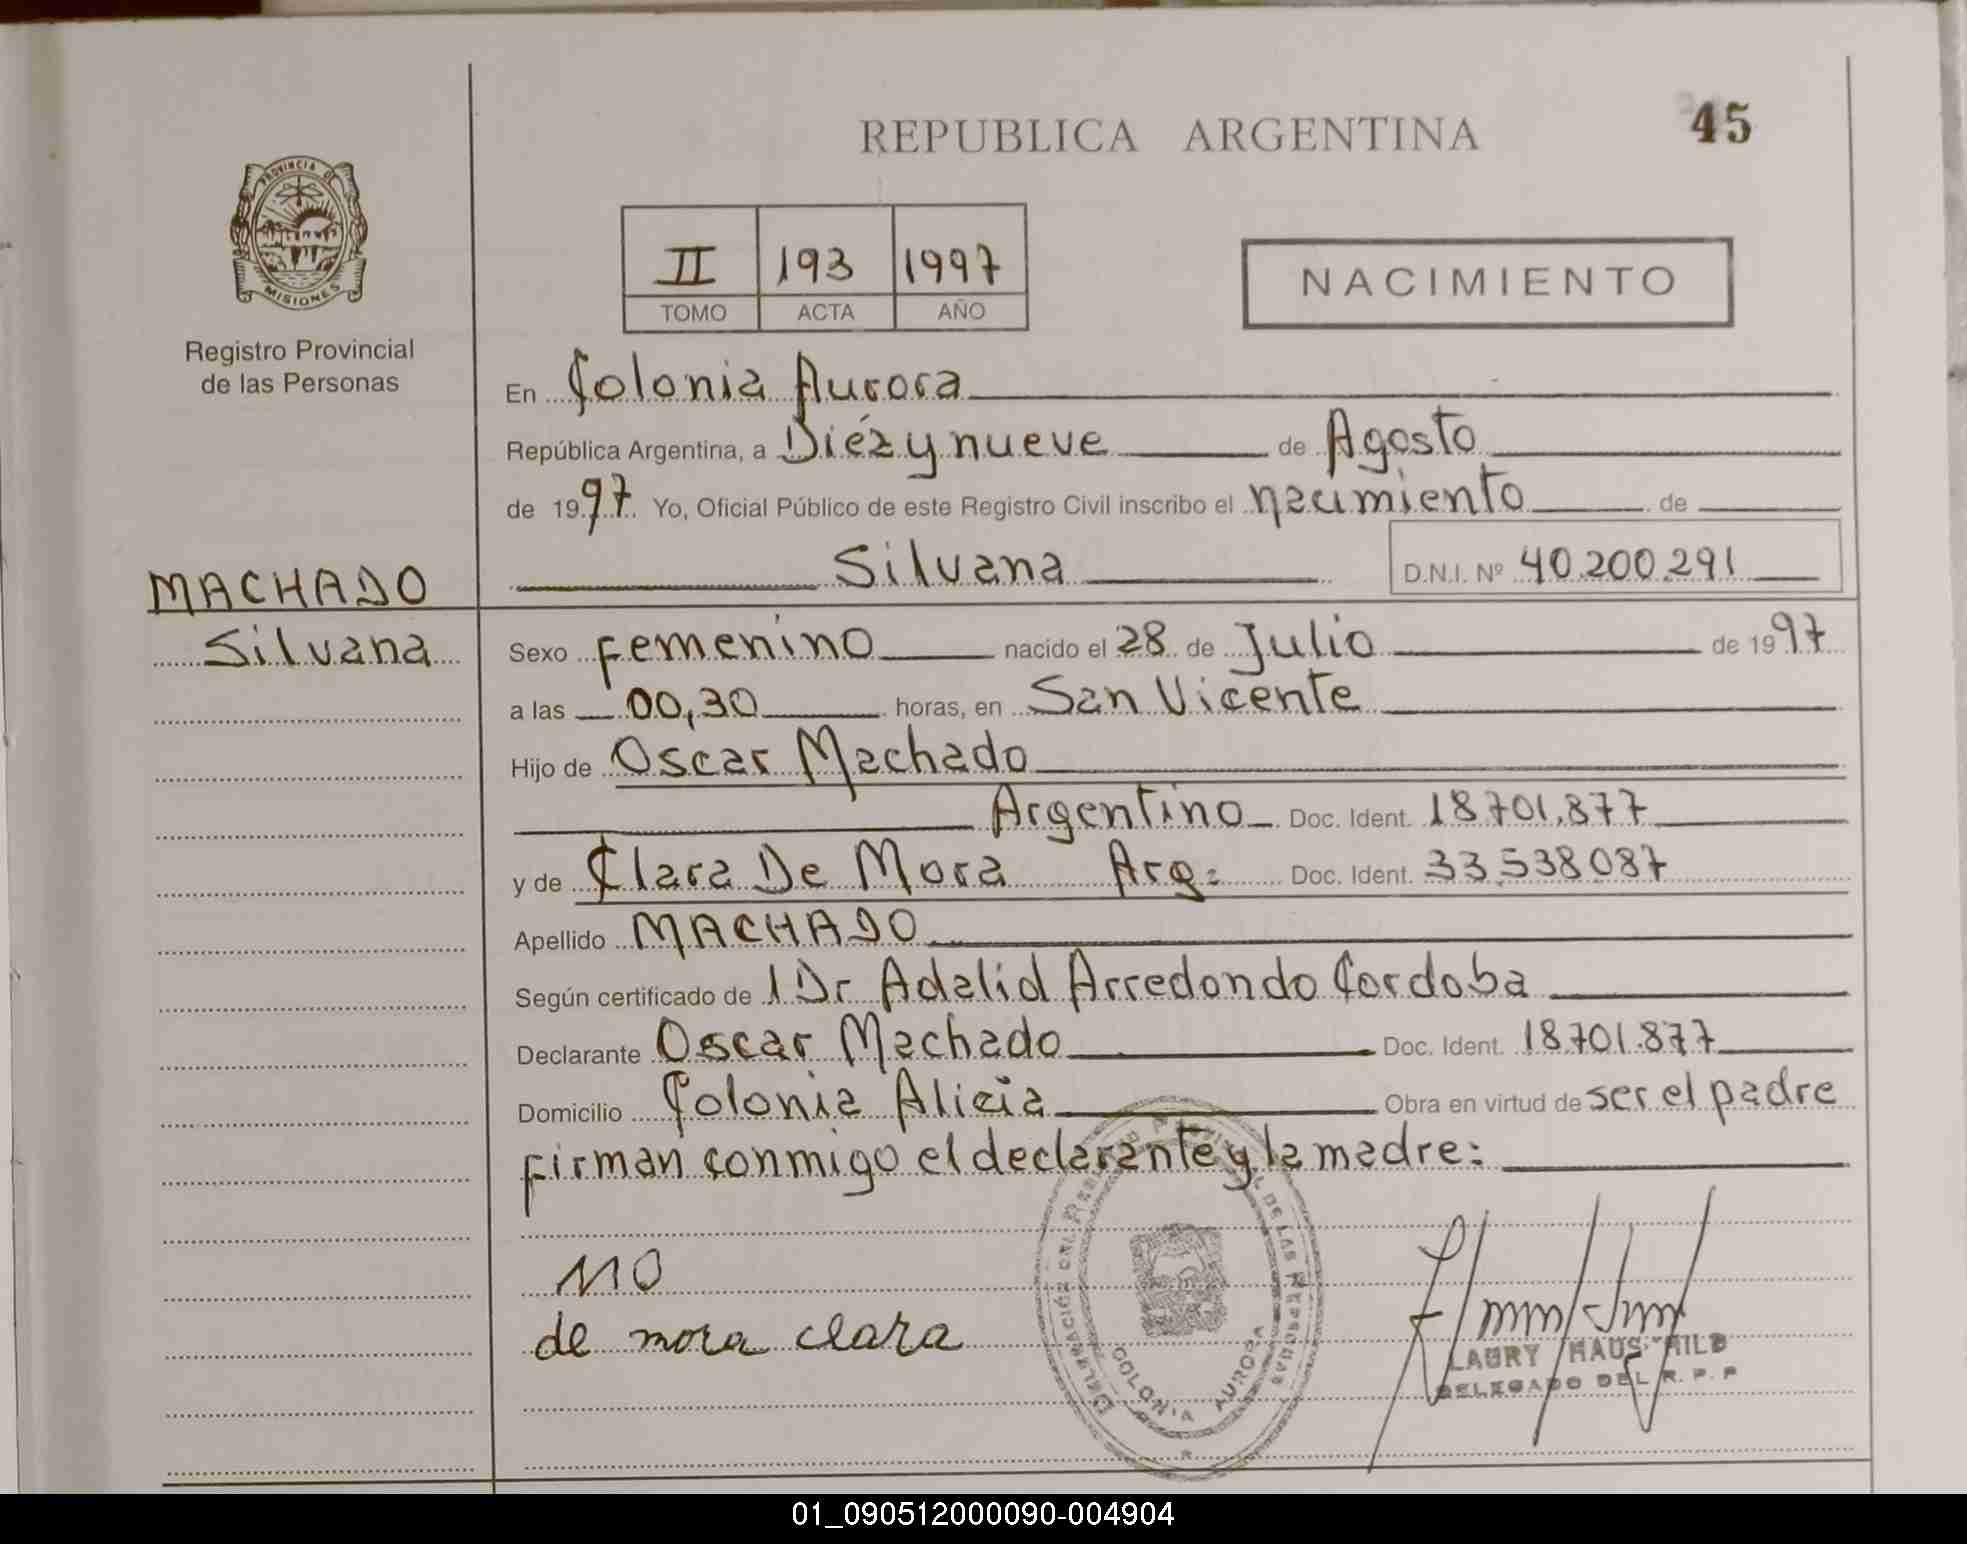 REPUBLICA ARGENTINA
45
PROVINCIA DE
MISIONES
Registro Provincial
de las Personas
II 193 1997
TOMO ACTA AÑO
NACIMIENTO
En Colonia Aurora
República Argentina, a Diéz y nueve de Agosto
de 1997 Yo, Oficial Público de este Registro Civil inscribo el nacimiento de
Silvana D.N.I. Nº 40.200.291
MACHADO
Silvana
Sexo Femenino nacido el 28 de Julio de 1997
a las 00,30 horas, en San Vicente
Hijo de Oscar Machado
Argentino Doc. Ident. 18.701.877
y de Clara De Mora Arg: Doc. Ident. 33.538.087
Apellido MACHADO
Según certificado de l Dr Adalid Arredondo Cordoba
Declarante Oscar Machado Doc. Ident. 18.701.877
Domicilio Colonia Alicia Obra en virtud de ser el padre
firman conmigo el declarante y la madre:
MO
de mora clara
COLONIA AURORA
LAURY
DELEGADO DEL R. P. P
01_090512000090-004904